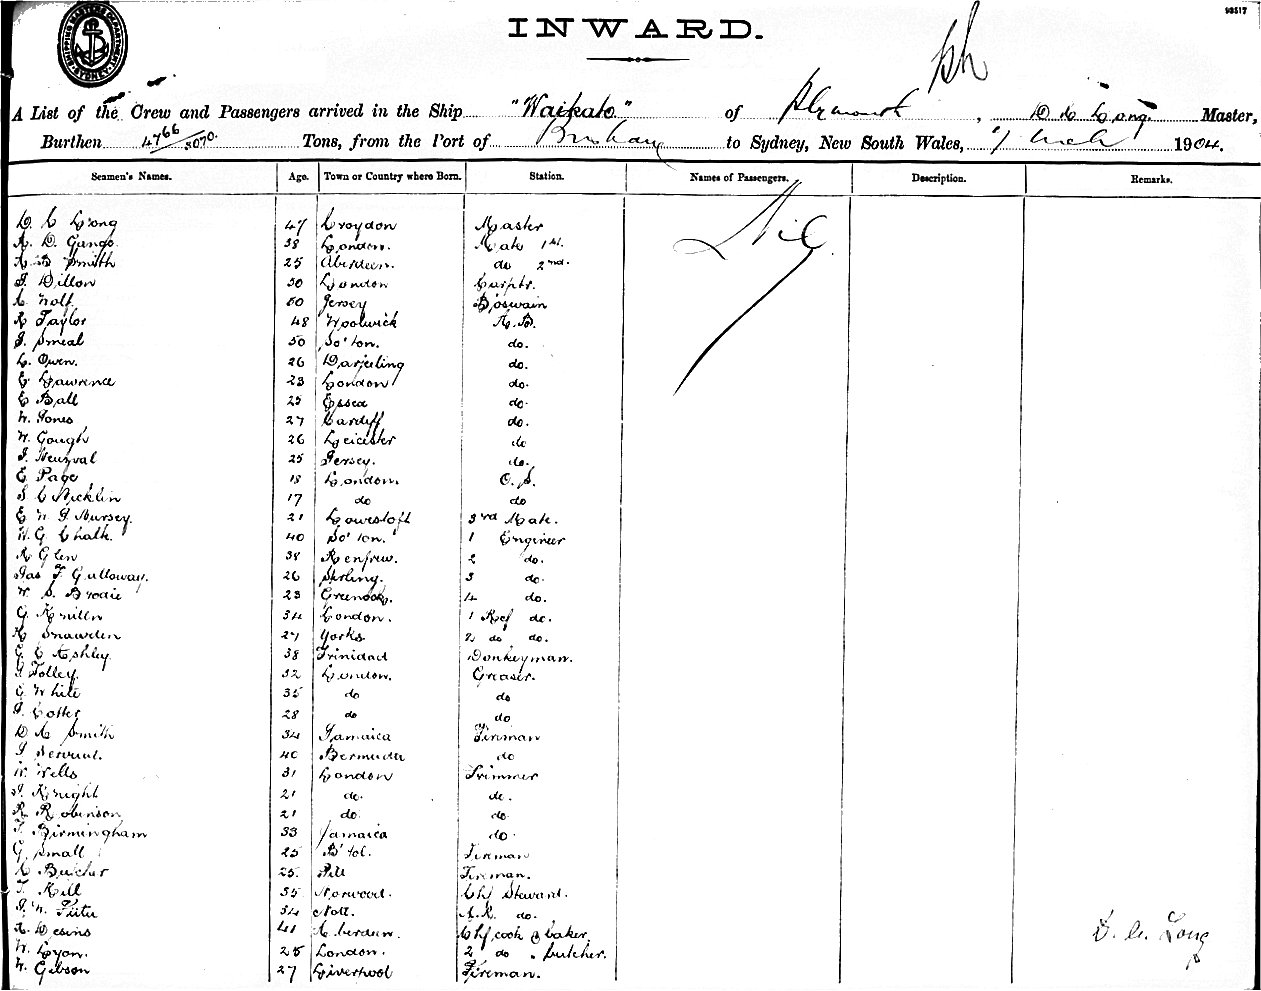 93517
SHIPPING MASTERS DEPARTMENT SYDNEY
INWARD.
A List of the Crew and Passengers arrived in the Ship "Waikato" of Plymouth, D. C. Long Master,
Burthen 4766/3070 Tons, from the Port of to Sydney, New South Wales, 1904.
Seamen's Names. Age. Town or Country where Born. Station. Names of Passengers. Description. Remarks.
D. C Long 47 Croydon Master Nil
A. D. 38 London. Mate 1st.
A B Smith 25 Aberdeen. do 2nd.
J. Dillon 50 London Carptr.
60 Jersey B'oswain
A Taylor 48 Woolwich A. B.
J. Smeal 50 So'ton. do.
L. Owen. 26 Darjeeling do.
C Lawrence 23 London do.
E Ball 25 Essex do.
W. Jones 27 Cardiff do.
W. Gough 26 Leicester do
J. 25 Jersey. do.
E Page 18 London. O. S.
S C Nicklin 17 do do
E W J Nursey. 21 Lowestoft 3rd Mate.
W. G. Chalk. 40 So'ton. 1 Engineer
A Glen 38 Renfrew. 2 do.
Jas F. Galloway. 26 Stirling. 3 do.
W. S. Brodie 23 Greenock. 4 do.
G 34 London. 1 Ref do.
A Snawden 27 Yorks 2 do do.
G. C Ashley 38 Trinidad Donkeyman.
J Folley. 32 London. Greaser.
G White 35 do do
J. Cotter 28 do do
D A Smith 34 Jamaica Fireman
J 40 Bermuda do
W. Wells 31 London Trimmer
J. Knight 21 do. do.
R Robinson 21 do. do.
T. Birmingham 33 Jamaica do.
G. Small 25 B'tol. Fireman
A Butcher 25. Pill Fireman.
T. Hill 35 Norwood. Ch Steward.
J. W. 34 Nott. do.
A. 41 Aberdeen. Chf cook & baker.
W. Lyon. 25 London. 2 do. butcher.
W. Gibson 27 Liverpool Fireman.
D. C. Long